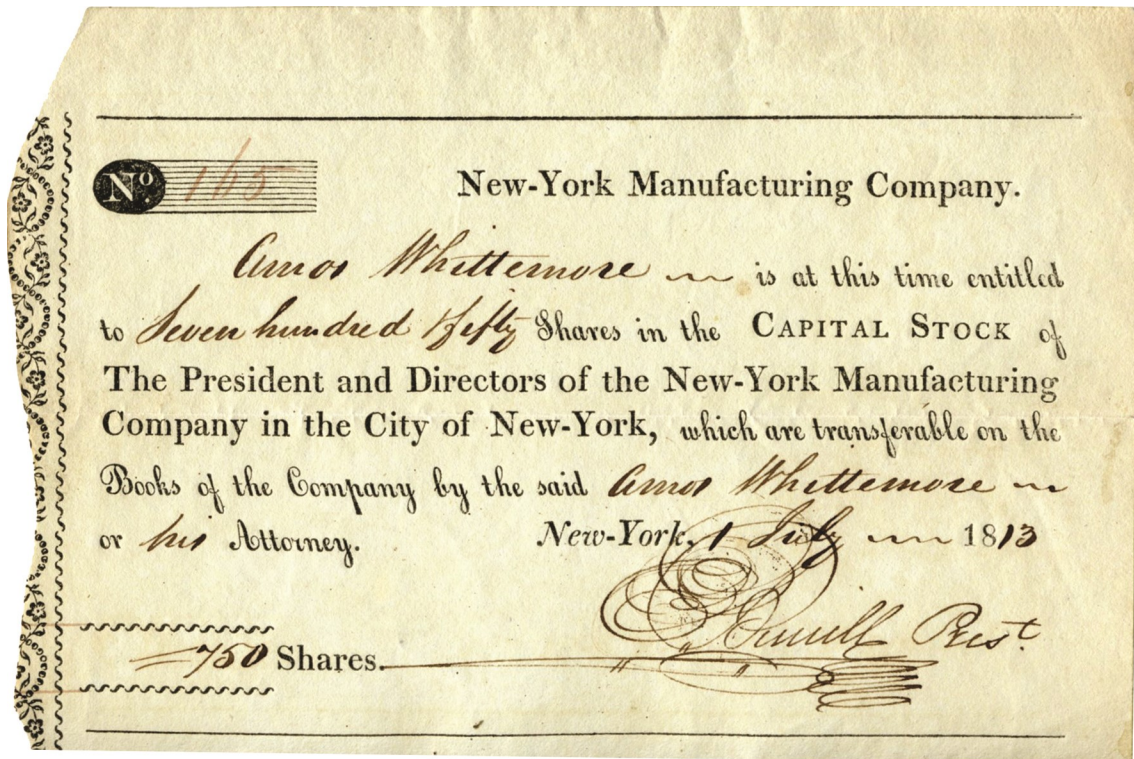 No. 165
New-York Manufacturing Company.
Amos Whittemore is at this time entitled
to Seven hundred & fifty Shares in the CAPITAL STOCK of
The President and Directors of the New-York Manufacturing
Company in the City of New-York, which are transferable on the
Books of the Company by the said Amos Whittemore
or his Attorney. New-York, 1 July 1813
Prest.
750 Shares.